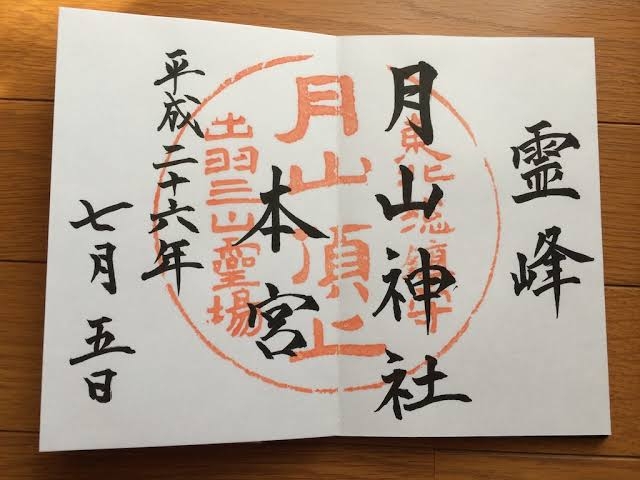 霊峰
月山神社
本宮
平成二十六年
七月五日
東北総鎮守
月山頂上
出羽三山霊場